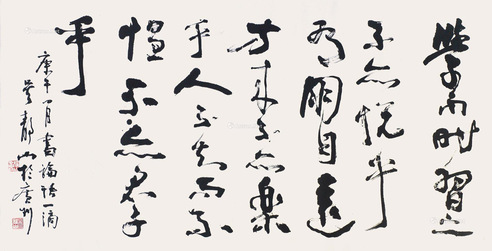 學而时習之
不亦悦乎
有朋自遠
方来不亦樂
乎人不知而不
愠不亦君子
乎
庚午一月書論語一滴
山於廣州